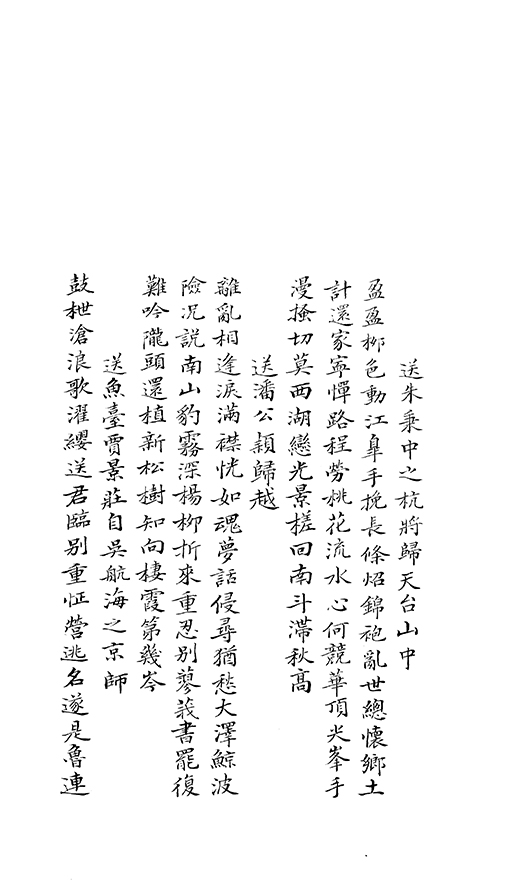 送朱秉中之杭將歸天台山中
盈盈柳色動江皐手挽長條炤錦袍亂世總懷鄉土
計還家寧憚路程勞桃花流水心何競華頂尖峯手
漫搔切莫西湖戀光景槎回南斗滯秋高
送潘公穎歸越
離亂相逢淚滿襟恍如魂夢話侵尋猶愁大澤鯨波
險况說南山豹霧深楊柳折來重忍別蓼莪書罷復
難吟隴頭還植新松樹知向棲霞第幾岑
送魚臺賈景莊自吳航海之京師
鼓枻滄浪歌濯纓送君臨別重怔營逃名遂是魯連